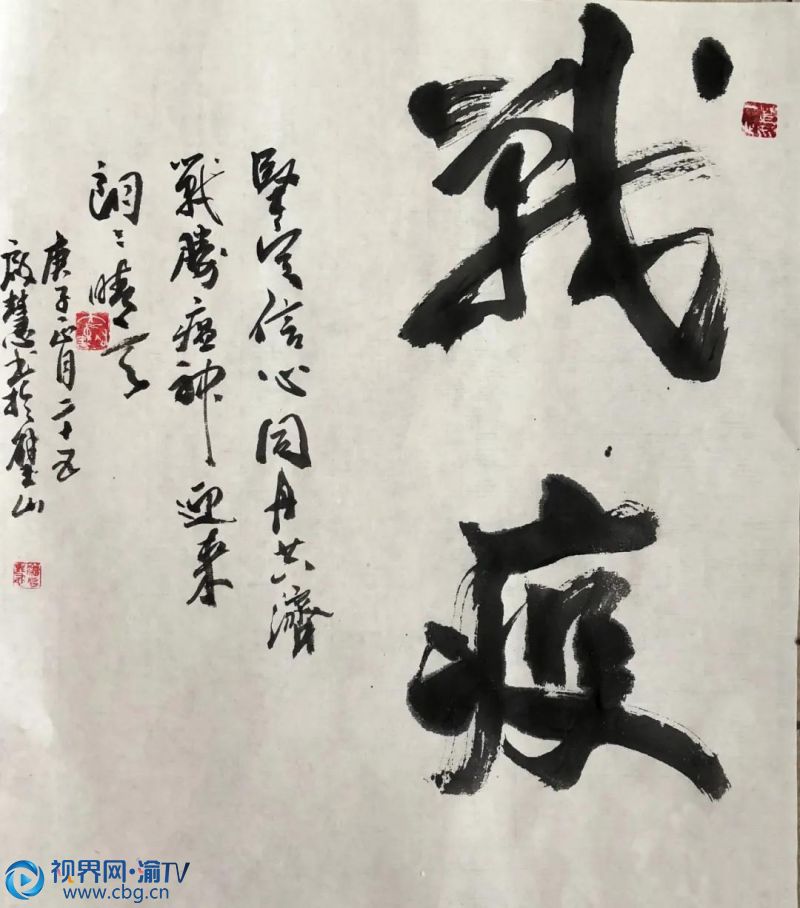 戰疫
堅定信心同舟共濟
戰勝瘟神迎来
朗〻晴天
庚子正月二十五
啟慧书於璧山
视界网·渝TV
www.cbg.cn